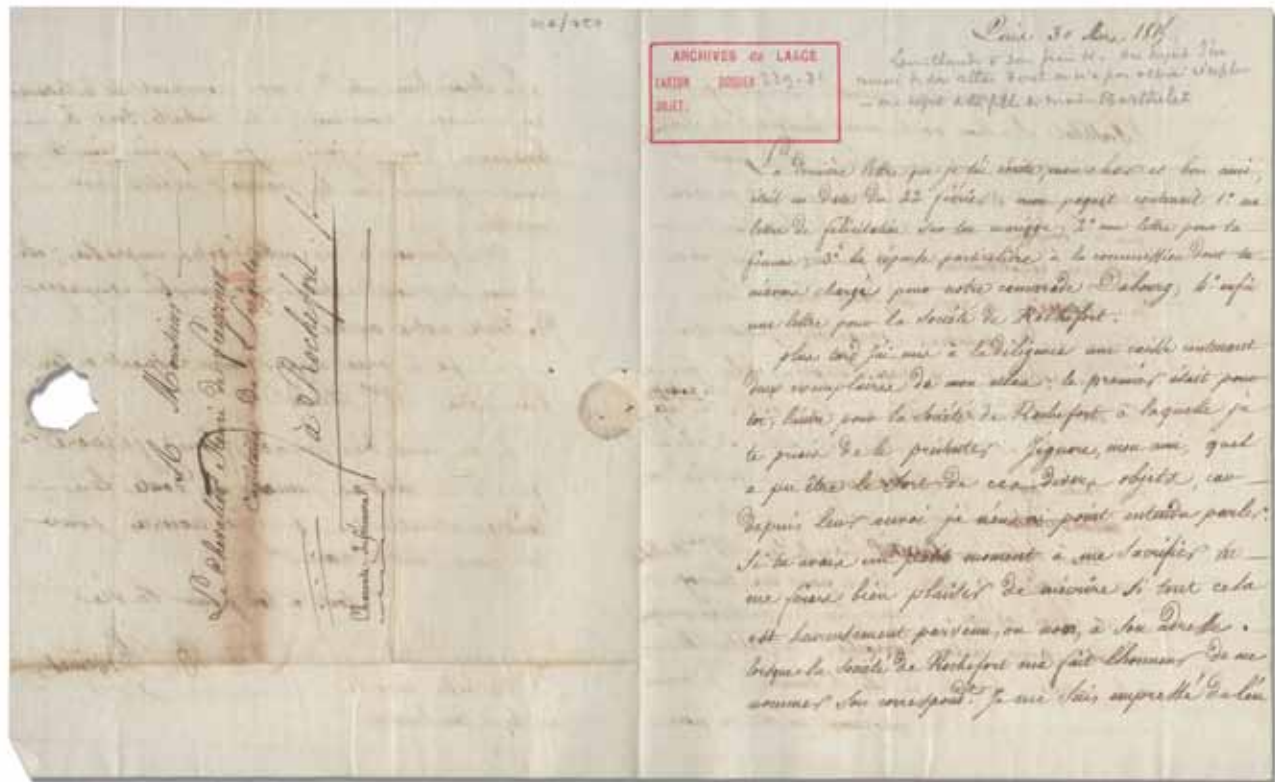 A Monsieur
Le chevalier Henri de
Capitaine de
à Rochefort
Charente Inférieure
ARCHIVES de LAAGE
CARTON DOSSIER 229-31
OBJET:
30 Mars 181
au sujet d'un
envoi de
au sujet
La dernière lettre que je t'ai écrite, mon cher et bon ami,
était en date du 22 février: mon paquet contenait 1° une
lettre de félicitation sur ton mariage; 2° une lettre pour ta
femme; 3° la réponse particulière à la commission dont tu
m'avais chargé pour notre camarade Dubourg; 4° enfin
une lettre pour la Société de Rochefort.
plus tard j'ai mis à la diligence une caisse contenant
deux exemplaires de mon atlas: le premier était pour
toi, l'autre pour la Société de Rochefort à laquelle je
te priais de le présenter. J'ignore, mon ami, quel
a pu être le sort de ces divers objets, car
depuis leur envoi je n'en ai point entendu parler.
Si tu avais un petit moment à me sacrifier tu
me feras bien plaisir de m'écrire si tout cela
est heureusement parvenu, ou non, à son adresse.
lorsque la Société de Rochefort m'a fait l'honneur de me
nommer son correspond.t Je me suis empressé de l'en